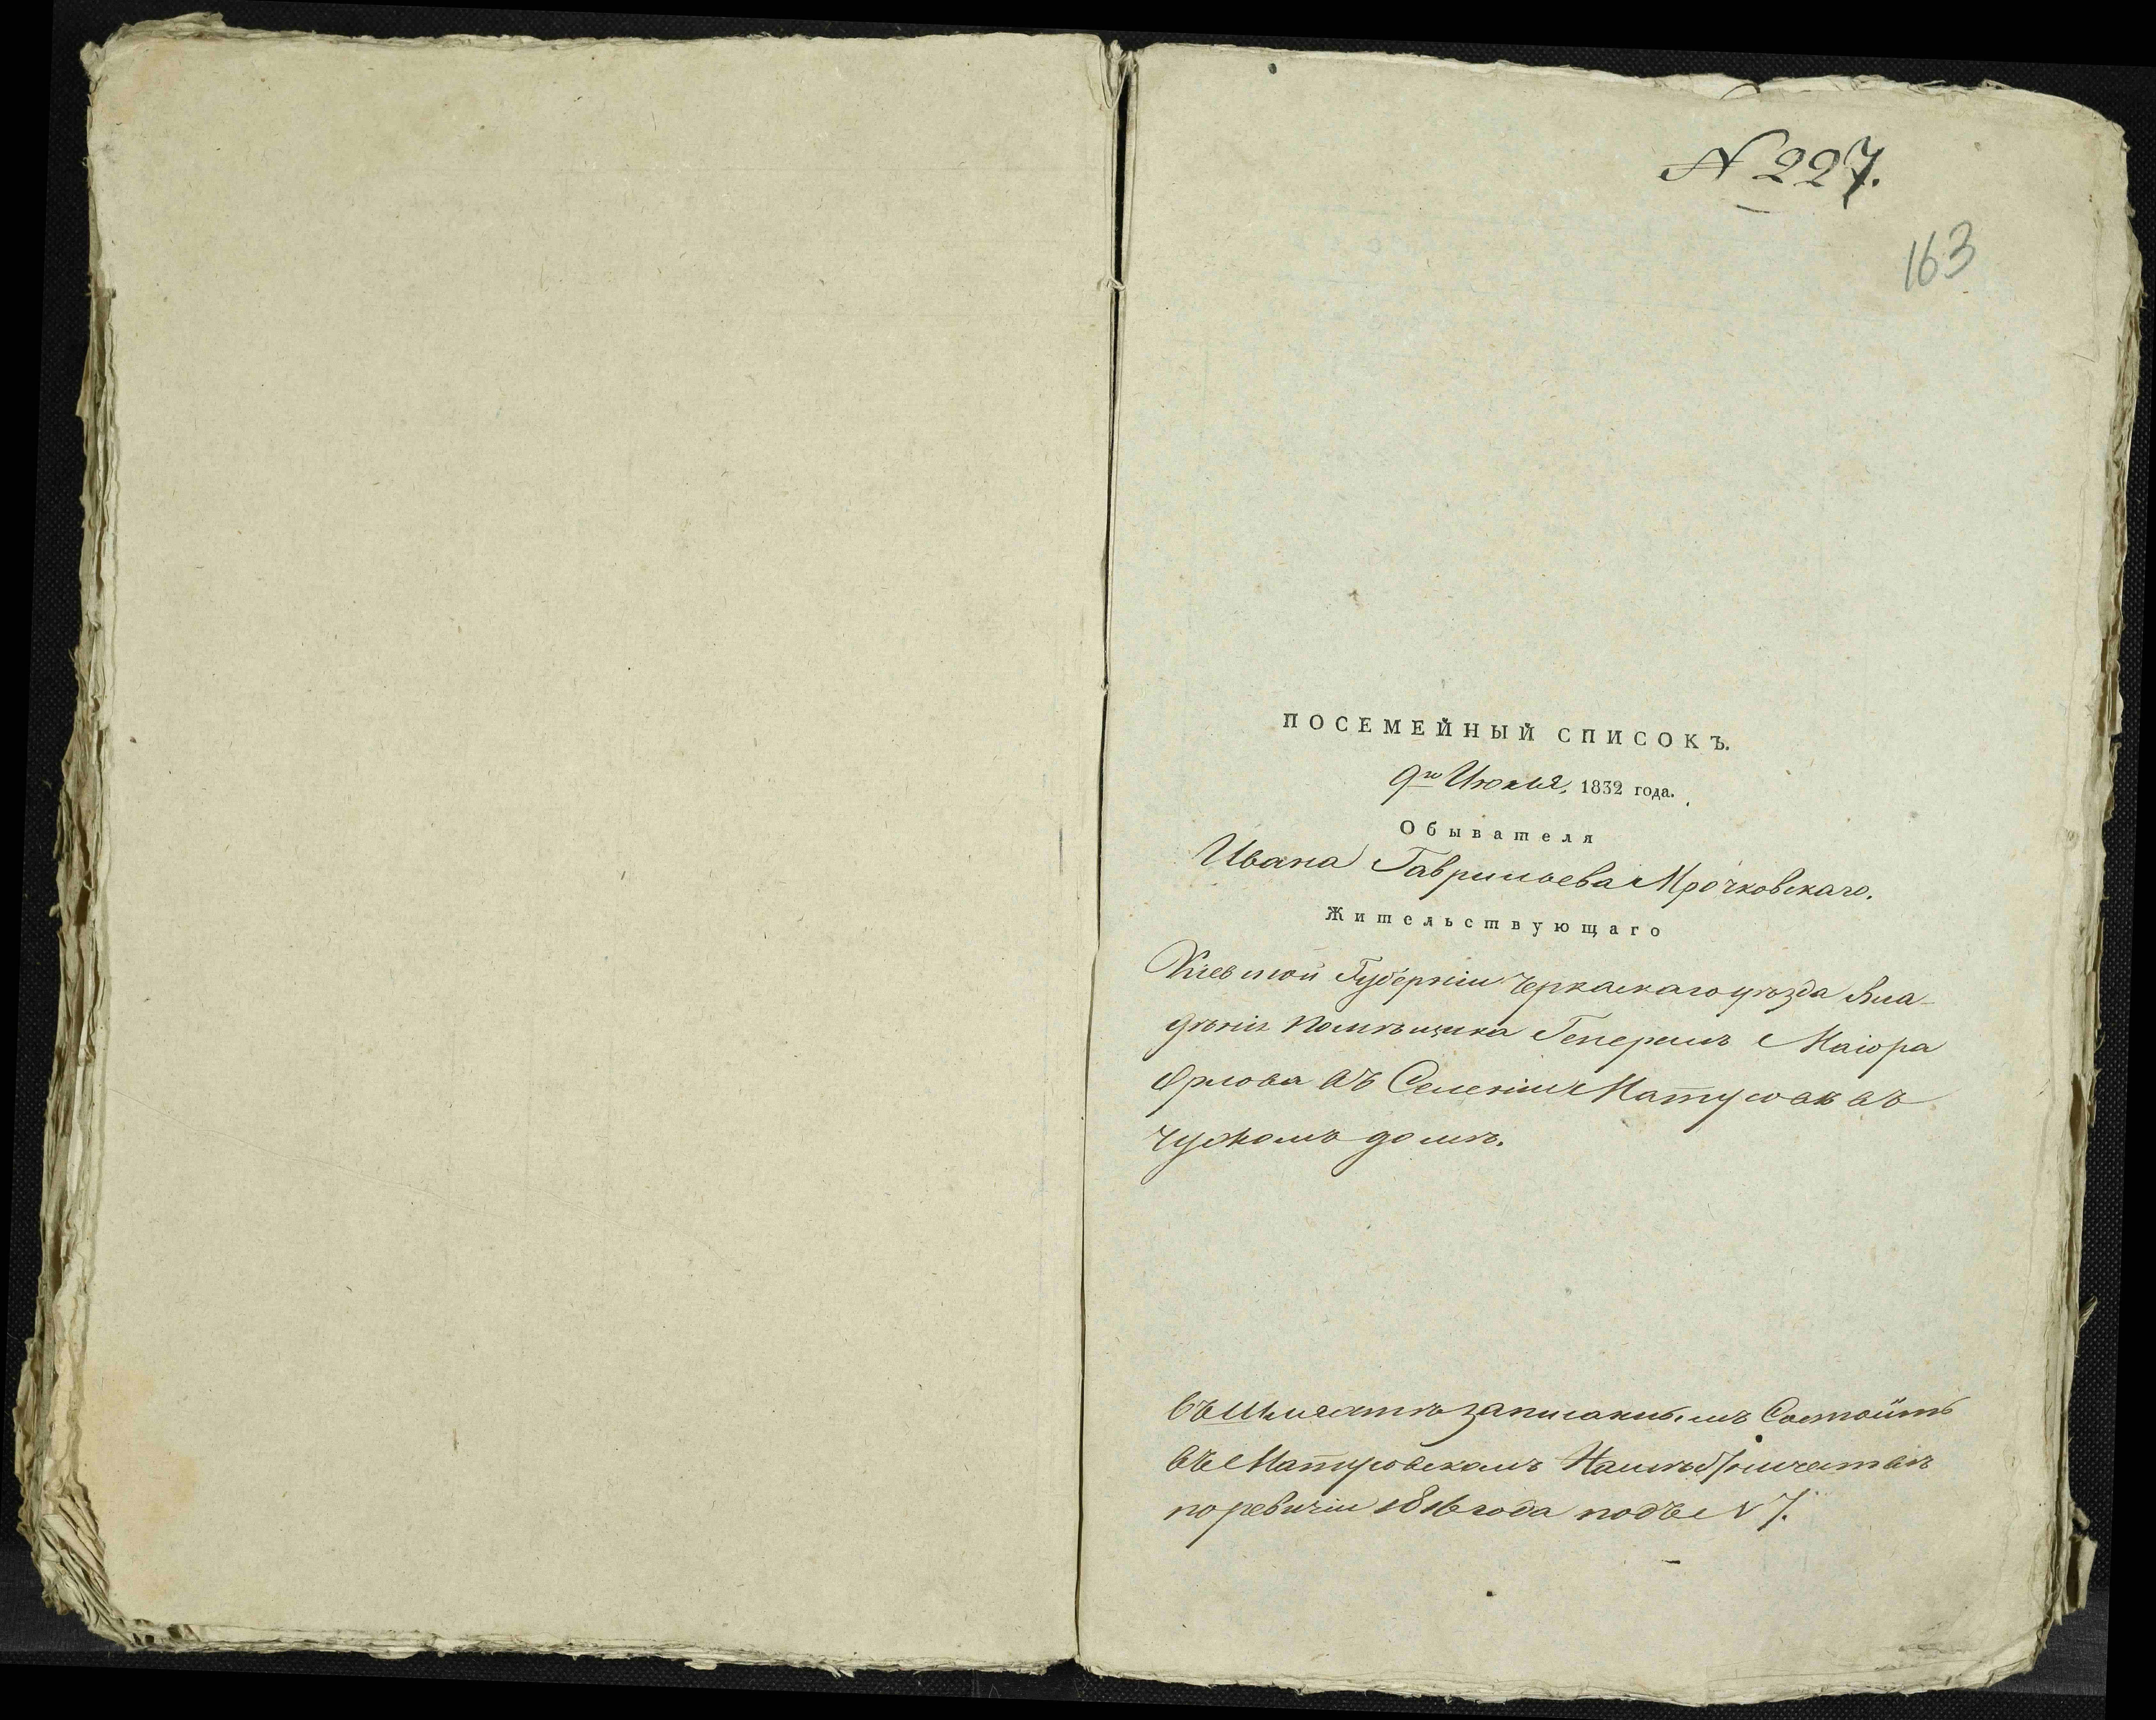 N 227.
163
ПОСЕМЕЙНЫЙ СПИСОКЪ.
9го Июля, 1832 года.
Обывателя
Ивана Гаврилоева Мрочковскаго.
Жительствующаго
Киевской Губерніи Черкаскаго уѣзда Вла-
дѣнія помѣщика Генералъ Маіора
Орлова въ Селеніи Матусовѣ въ
чужомъ домѣ.
записаннымъ Состоитъ
въ Матусовскомъ
по ревизіи 1816 года подъ N 7.